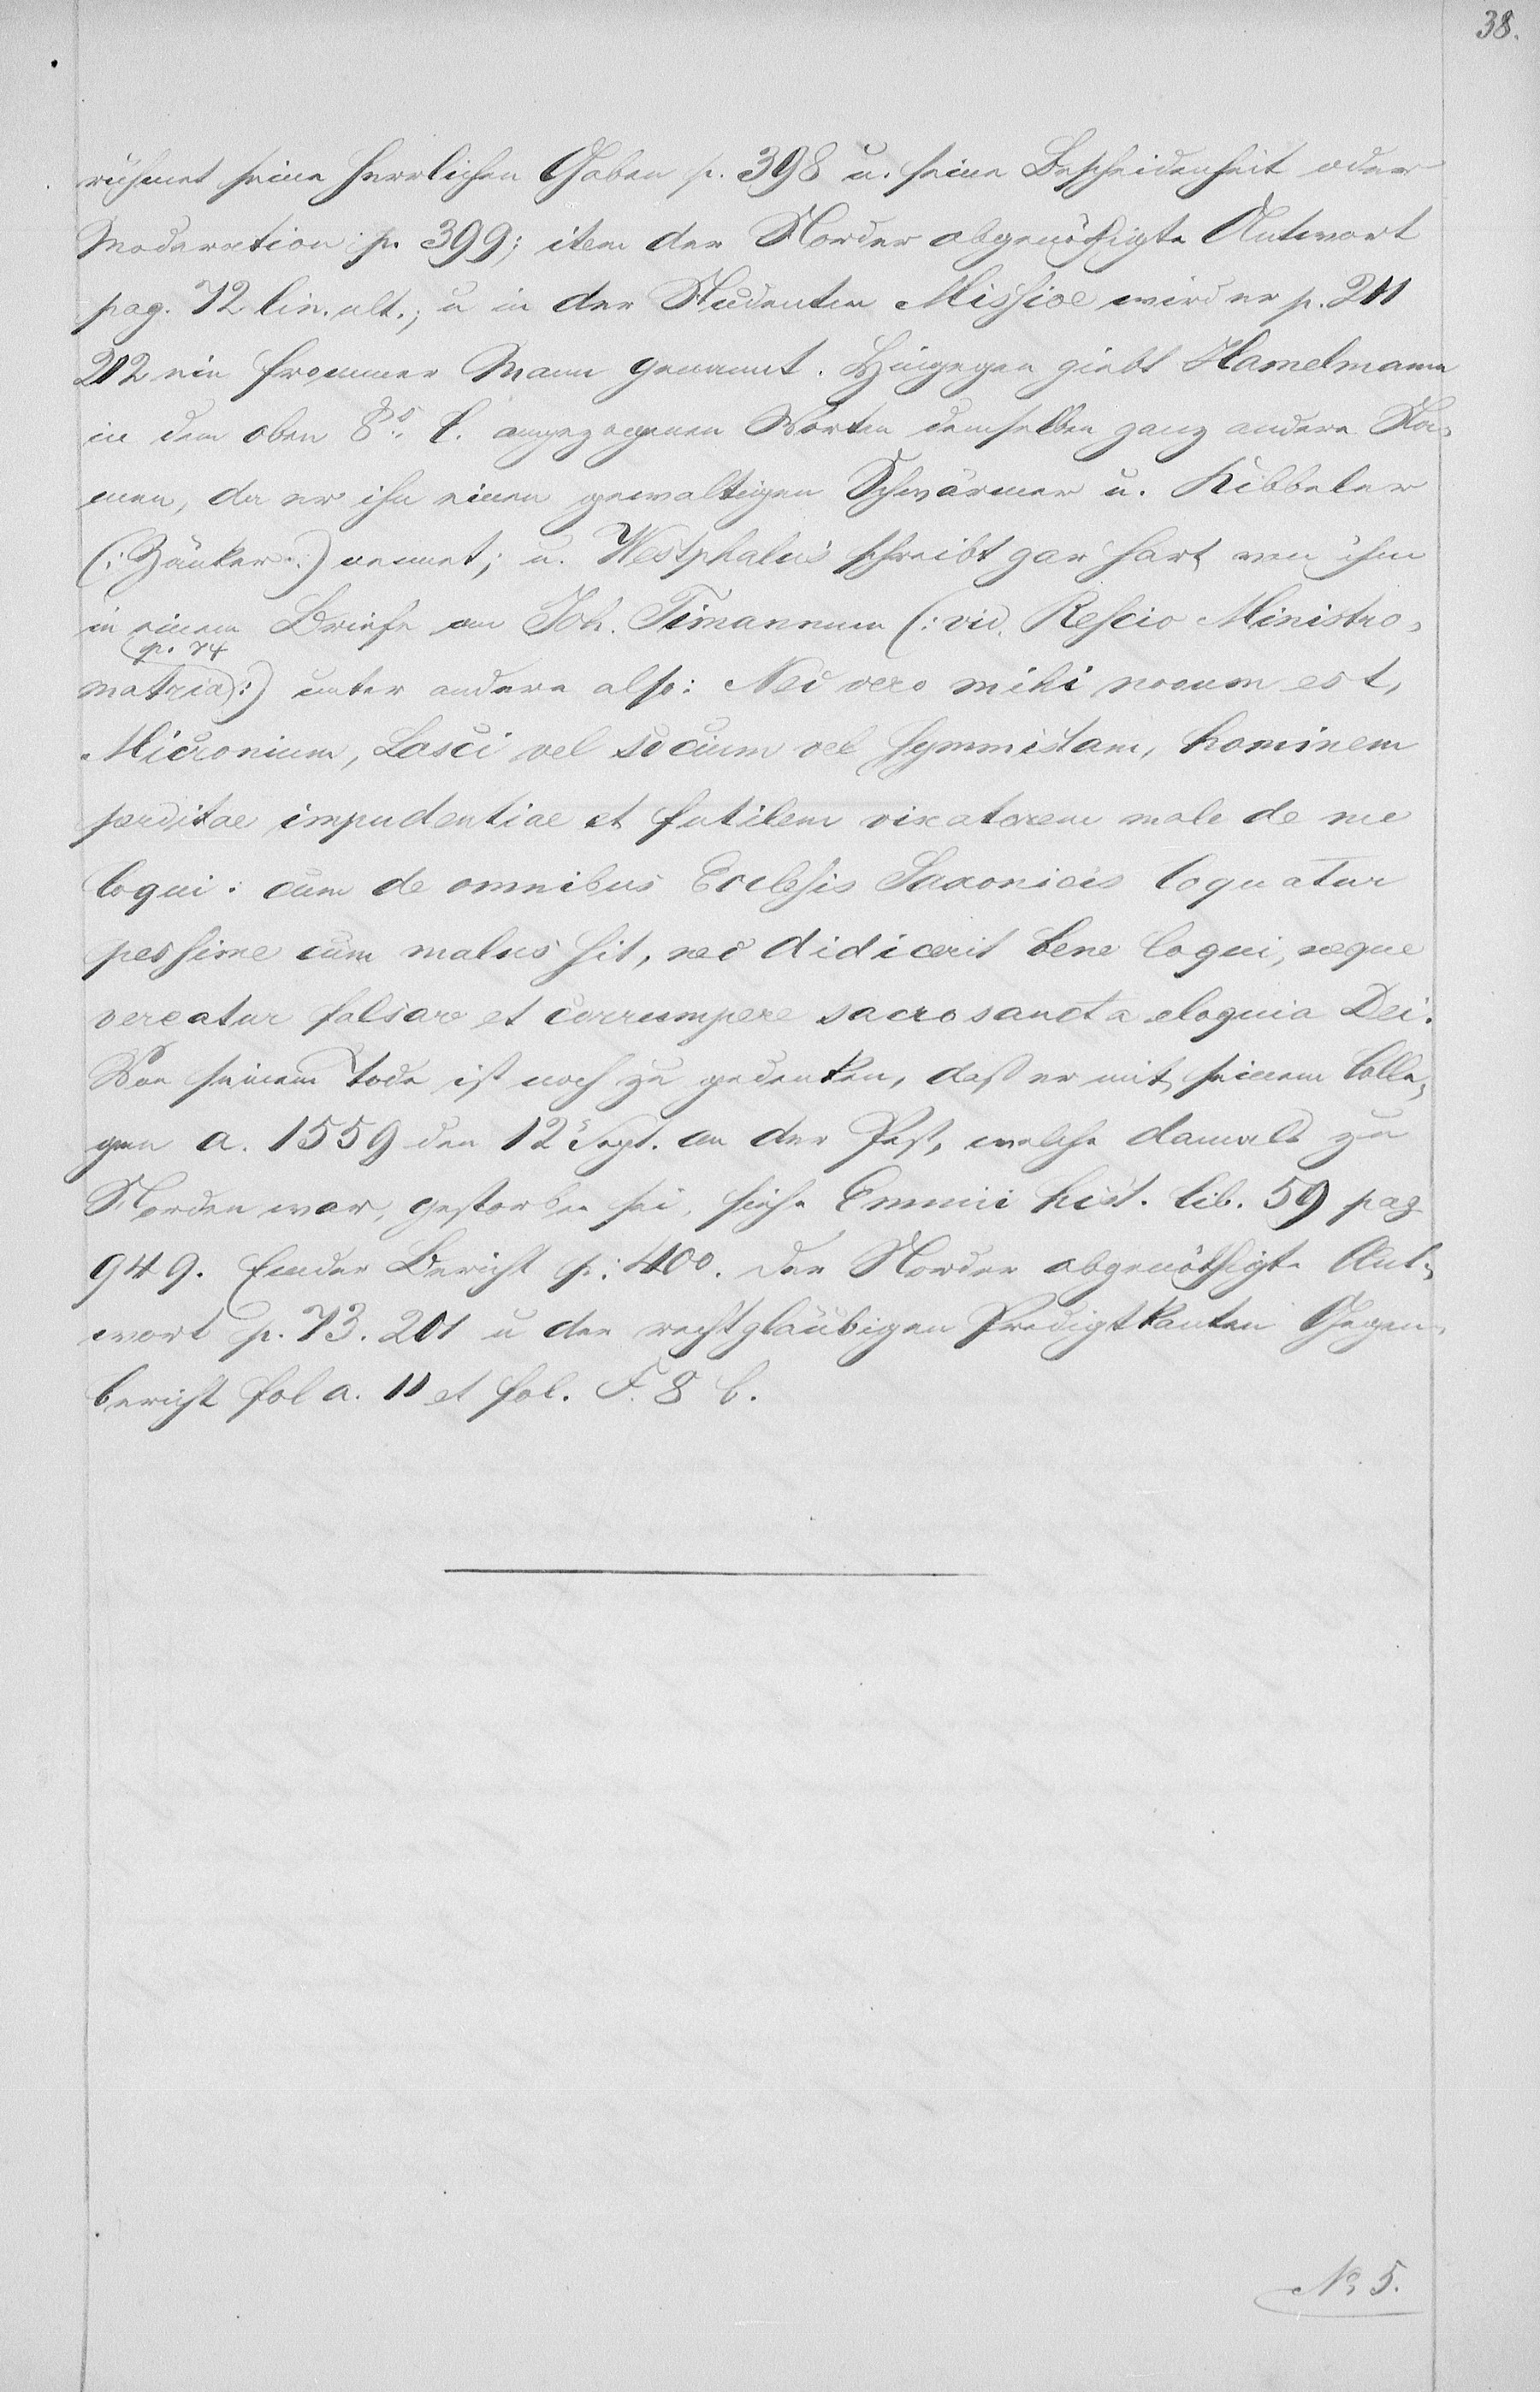 38.
rühmet seine herrlichen Gaben p. 398 u. seine Bescheidenheit oder
Moderation p. 399; item der Norder abgenöthigte Antwort
pag. 72 lin. ult.; u in der Studenten Missive wird er p. 211
212 ein frommer Mann genannt. Hingegen giebt Hamelmann
in dem oben angezogenen Worten demselben ganz andere Na-
men, da er ihn einen gewaltigen Schwärmer u. Kibbeler
(: Zänker :) nennet; u. Westphalus schreibt gar hart von ihm
in einem Briefe an Joh. Timannum (: vid. Rescio Ministro-
p. 74
matria :) unter andern also: Nec vero mihi novum est,
Micronium, Lasci vel socium vel symmistam, hominem
perditae impudentiae et futilem rixatorem male de me
loqui: cum de omnibus Eclesiis Saxonicis loquatur
pessime cum malus sit, nec didicerit bene loqui, neque
vereatur falsare et corrumpere sacrosancta eloquia Dei.
Von seinem Tode ist noch zu gedenken, daß er mit seinem Colle-
gen a. 1559 den 12 Sept. an der Pest, welche damals zu
Norden war, gestorben sei, siehe Emmii hist. lib. 59 pag
949. Emder Bericht p. 400. der Norder abgenöthigte Ant-
wort p. 73. 201 u der rechtgläubigen Predigtkanten Gegen-
bericht fol a. 11 et fol. F. 8 b.
No 5.